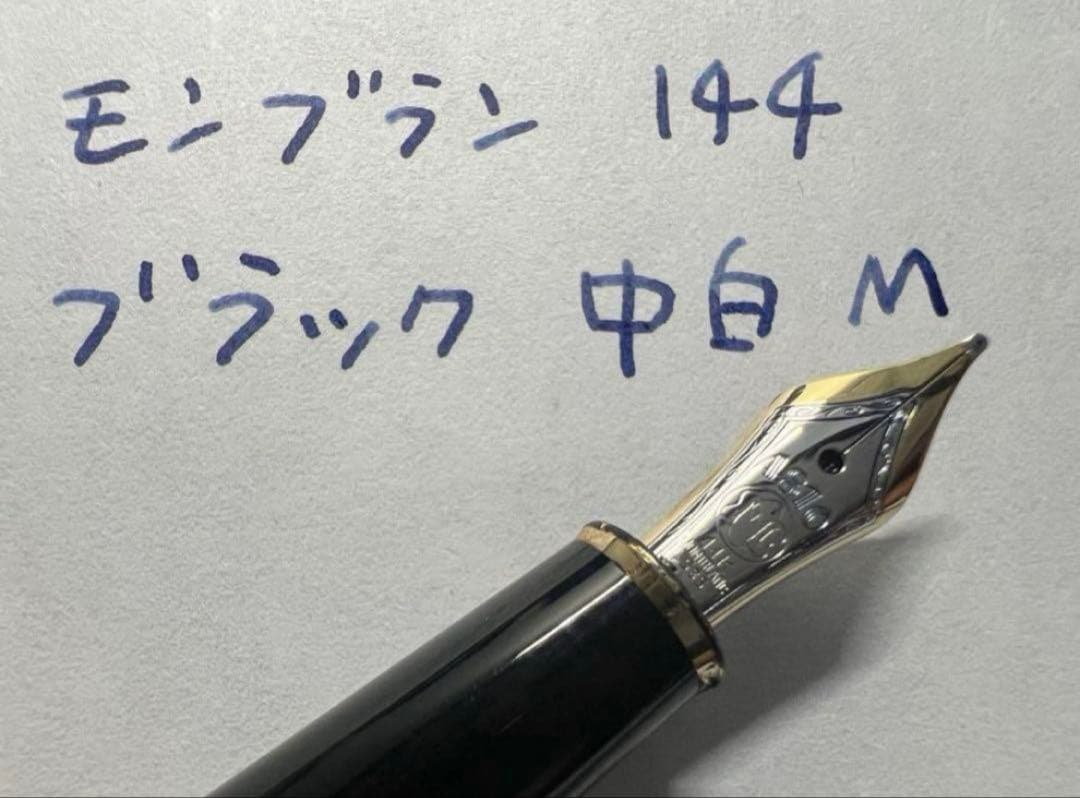 モンブラン 144
ブラック 中白 M